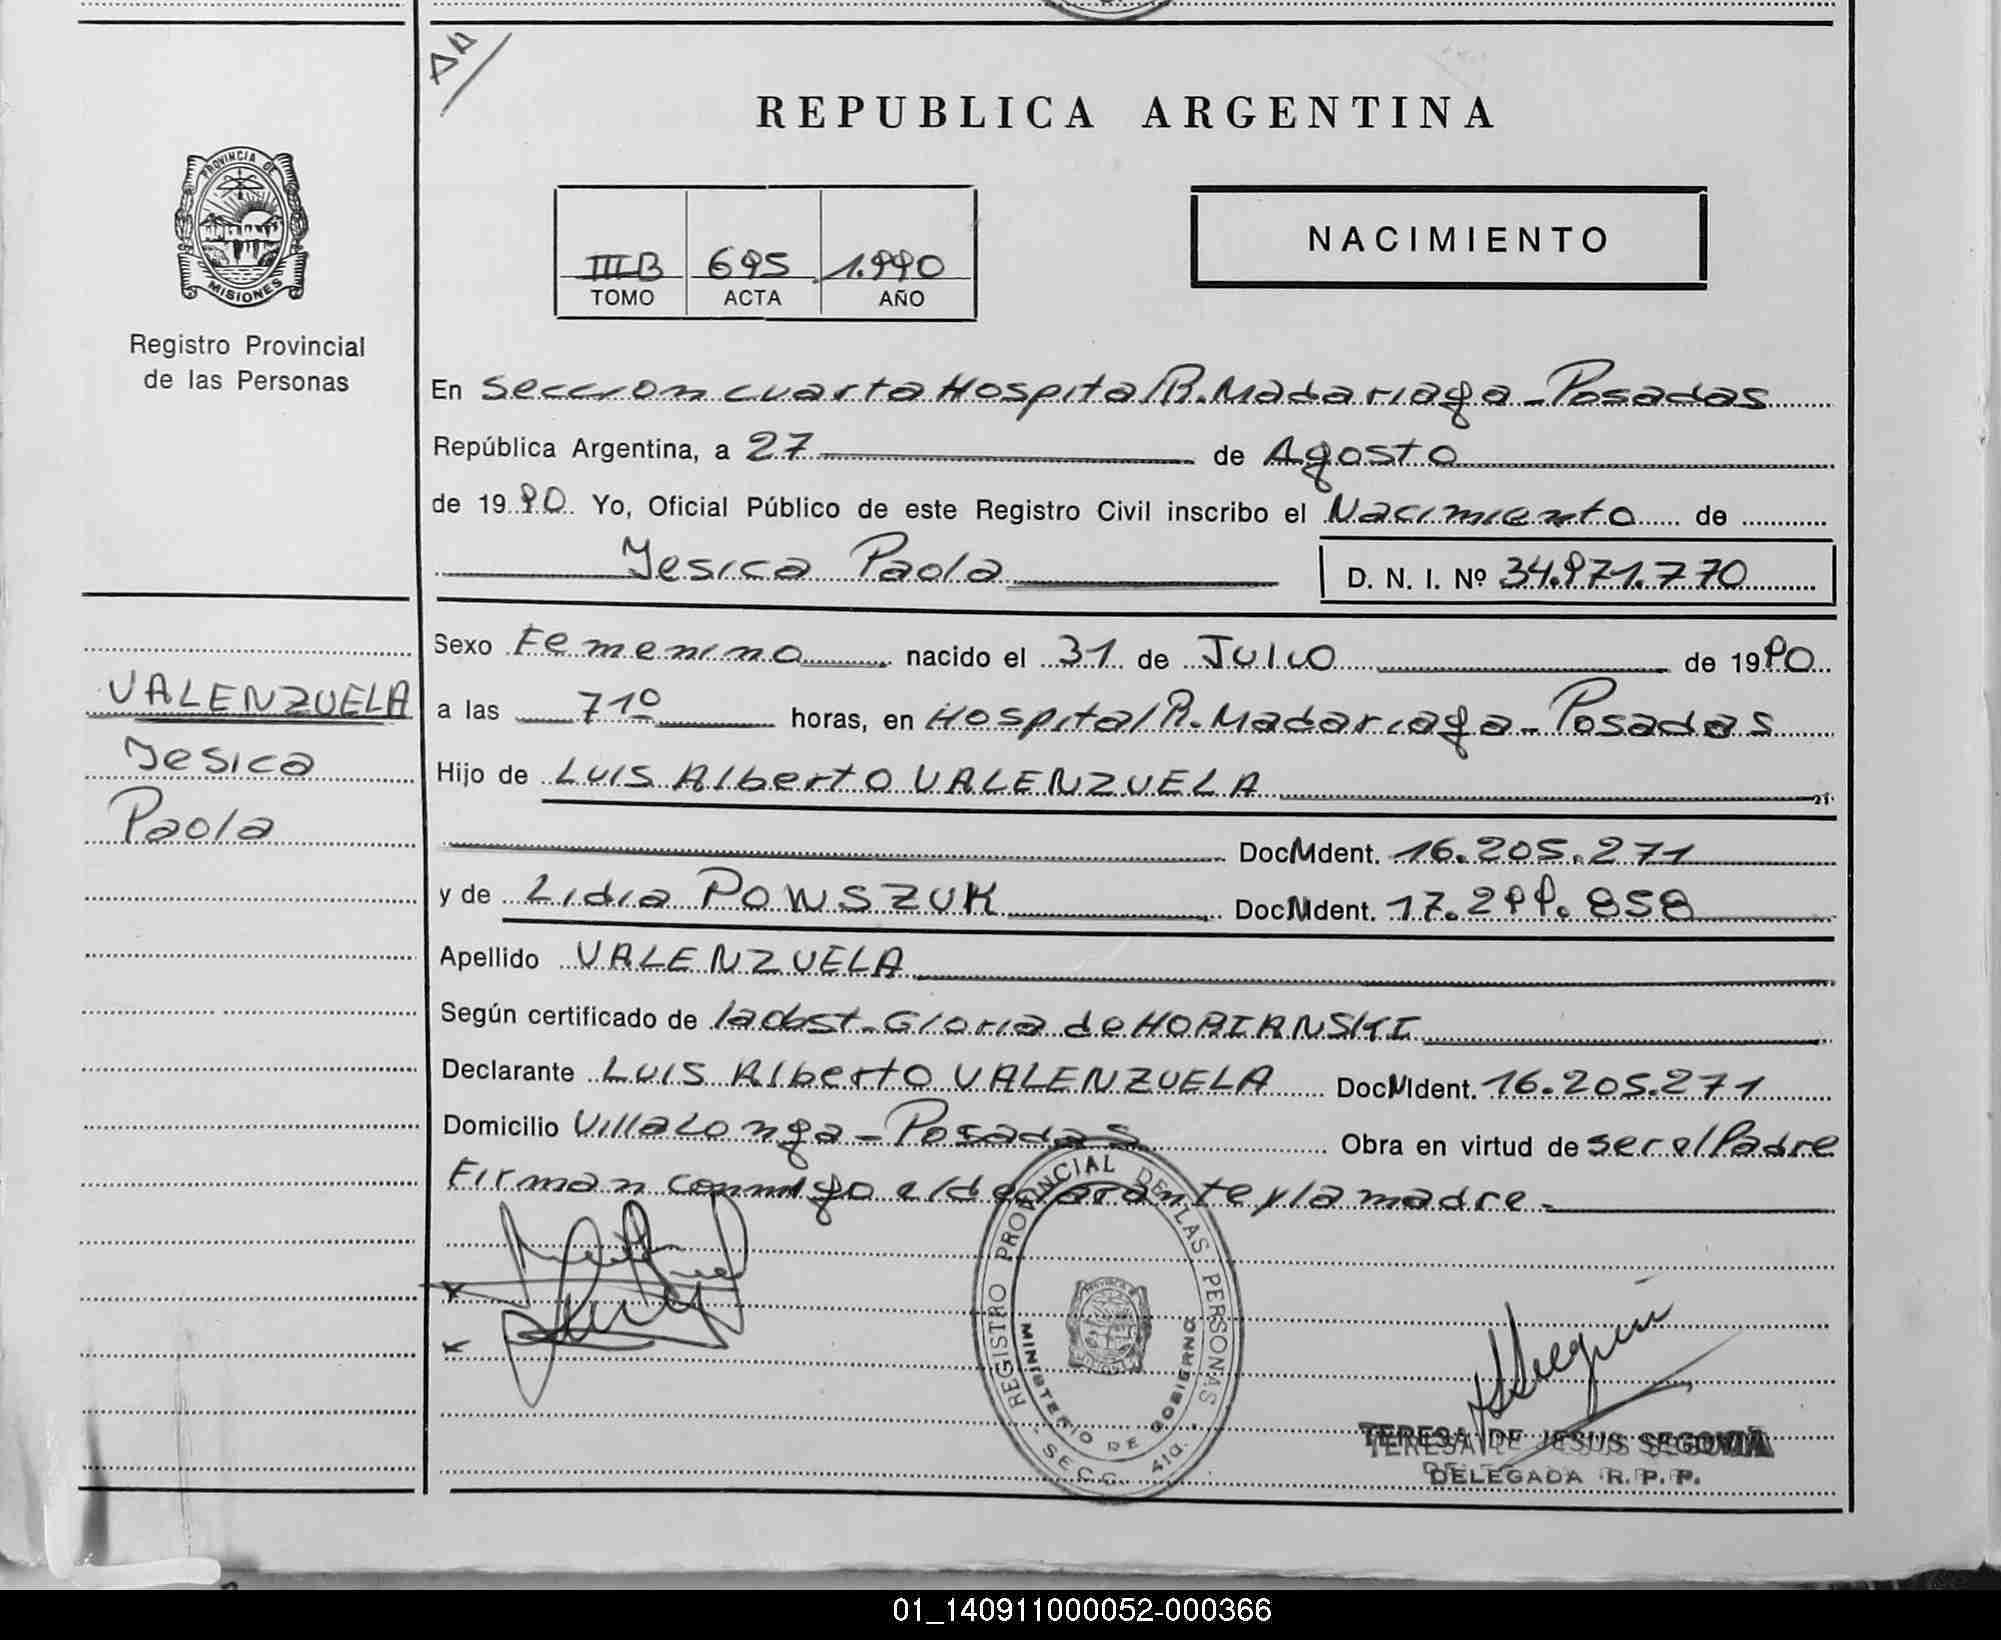 REPUBLICA ARGENTINA
PROVINCIA DE
MISIONES
Registro Provincial
de las Personas
III B 695 1.990
TOMO ACTA AÑO
NACIMIENTO
En Seccion cuarta Hospital R. Madariaga - Posadas
República Argentina, a 27 de Agosto
de 1990 Yo, Oficial Público de este Registro Civil inscribo el Nacimiento de
Jesica Paola D. N. I. Nº 34.971.770
Sexo Femenino nacido el 31 de Julio de 1990
a las 7 10 horas, en Hospital R. Madariaga - Posadas
Hijo de Luis Alberto VALENZUELA
Doc. Ident. 16.205.271
y de Lidia POWSZUK Doc. Ident. 17.299.858
Apellido VALENZUELA
Según certificado de la Obst. Gloria de
Declarante Luis Alberto VALENZUELA Doc. Ident. 16.205.271
Domicilio Villa Longa - Posadas Obra en virtud de ser el Padre
Firman conmigo el declarante y la madre.-
VALENZUELA
Jesica
Paola
REGISTRO PROVINCIAL DE LAS PERSONAS
MINISTERIO DE GOBIERNO
SECC. 4ta.
TERESA DE JESUS SEGOVIA
DELEGADA R. P. P.
01_140911000052-000366